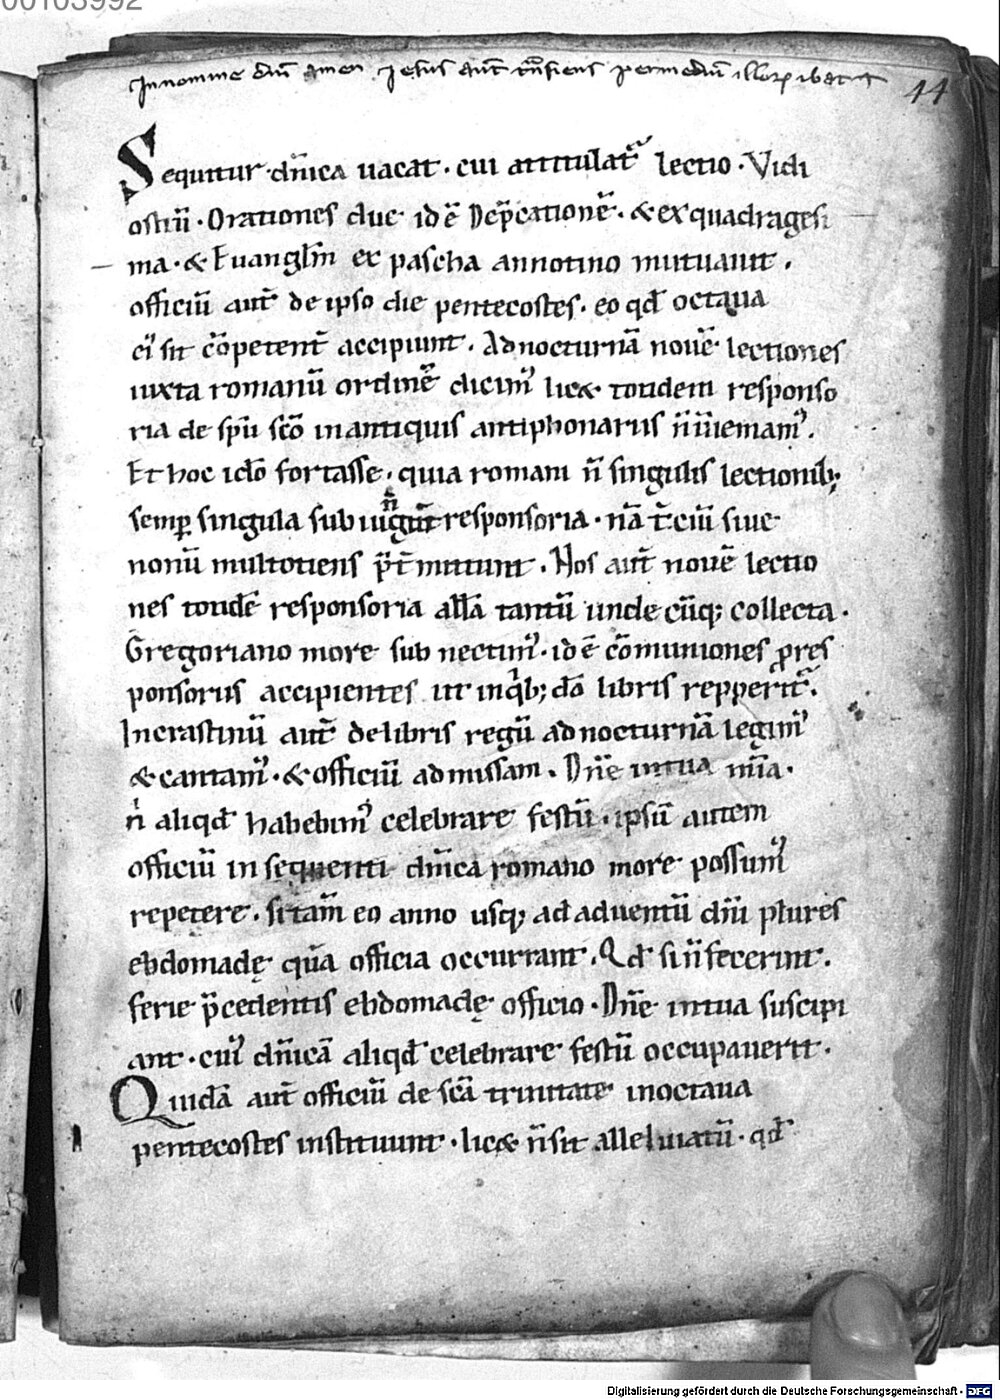 00103992
In nomine dn̄i amen Jesus aut̄ trānsiens per mediū illorꝫ ibat
44
Sequitur dn̄ica uacat · cui attitulat᷑ lectio · Vidi
ostiū · Orationes due · id ē Dep̄cationē · & ex quadragesi
ma · & Euangl̄m ex pascha annotino mutuauit .
officiū aut̄ de ipso die pentecostes · eo qd̄ octaua
ei᷒ sit cōpetent̄ accipiunt . Ad nocturnā nouē lectiones
iuxta romanū ordinē dicim᷒ lic& totidem responso
ria de sp̄u sc̄o in antiquis antiphonariis n̄ inueniam᷒ .
Et hoc id̄o fortasse · quia romani n̄ singulis lectionib;
semp̄ singula subiūgūt responsoria · nā t̄ciū siue
nonū multotiens p̄t̄mittunt . Nos aut̄ nouē lectio
nes totidē responsoria all̄a tantū unde cūq; collecta .
Gregoriano more subnectim᷒ · id ē cōmuniones p̱ res
ponsoriis accipientes ut in qⁱb;dā libris repperit᷑ .
In crastinū aut̄ de libris regū ad nocturnā legim᷒
& cantam᷒ · & officiū ad missam . Dn̄e in tua mi̅a .
n̄ aliqd̄ habebim᷒ celebrare festū · ipsū autem
officiū in sequenti dn̄ica romano more possum᷒
repetere . si tam̄ eo anno usq; ad aduentū dn̄i plures
ebdomadę quā officia occurrant . Qd̄ si n̄ fecerint .
ferie p̄cedentis ebdomadę officio · Dn̄e in tua suscipi
ant · cui᷒ dn̄icā aliqd̄ celebrare festū occupauerit .
Quidā aut̄ officiū de sc̄a trinitate in octaua
pentecostes instituunt · lic& n̄ sit alleluiatū · qd̄
Digitalisierung gefördert durch die Deutsche Forschungsgemeinschaft - DFG